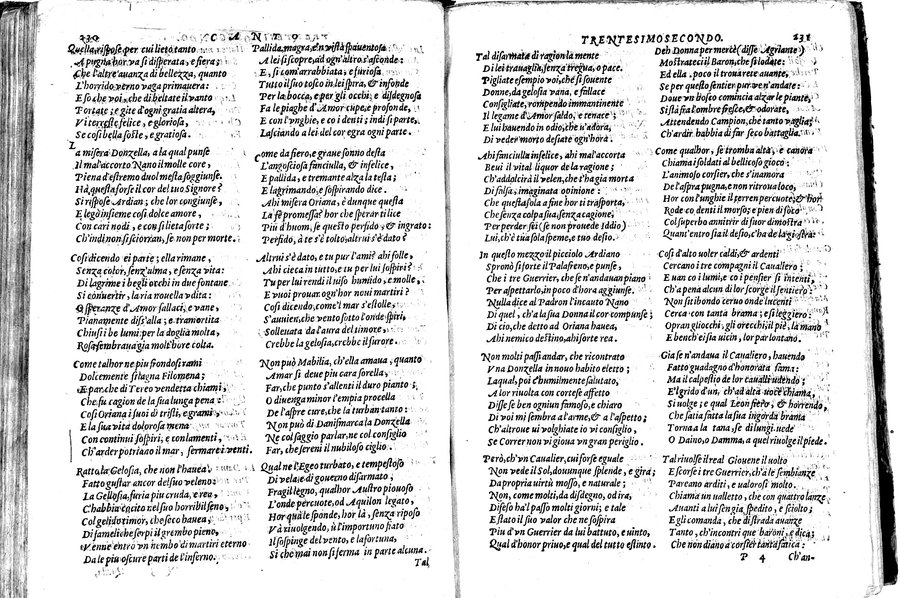 230 CANTO
Quella, rispose, per cui lieto tanto
A pugna hor va si disperata, e fiera;
Che l'altre auanza di bellezza, quanto
L'horrido verno vaga primauera:
E so che voi, che di beltate il vanto
Portate se gite d'ogni gratia altera,
Vi terreste felice, e gloriosa,
Se cosi bella foste, e gratiosa.
La misera Donzella, a la qual punse
Il mal'accorto Nano il molle core,
Piena d'estremo duol mesta soggiunse.
Hà questa forse il cor del tuo Signore?
Si rispose Ardian; che lor congiunse,
E legò insieme così dolce amore,
Con cari nodi, e con si lieta sorte;
Ch'indi non si scior an, se non per morte.
Così dicendo ei parte; ella rimane,
Senza color, senz'alma, e senza vita:
Di lagrime i begli occhi in due fontane
Si conuertir, la ria nouella vdita:
O speranze d'Amor fallaci, e vane,
Pianamente diss'alla; e tramortita
Chiuse i be lumi: per la doglia molta,
Rosa sembraua già molt'hore colta.
Come talhor ne piu frondosi rami
Dolcemente si lagna Filomena;
E par, che di Tereo vendetta chiami,
Che fu cagion de la sua lunga pena:
Così Oriana i suoi dì tristi, e grami,
E la sua vità dolorosa mena
Con continui sospiri, e con lamenti,
Ch'arder potriano il mar, fermare i venti.
Ratto, la Gelosia, che non l'haueà,
Fatto gustar ancor del suo veleno:
La Gelosia, furia piu cruda, e rea,
C'habbia Cocito nel suo horribil seno,
Col gelido timor, che seco hauea,
Di fameliche serpi il grembo pieno,
Venne entro vn nembo di martiri eterno
Da le piu oscure parti de l'inferno.
Pallida, magra, e'n vista spauentosa
A lei si scopre, ad ogn'altro s'asconde:
E, si com'arrabbiata, e furiosa
Tutto il suo tosco in lei spira, & infonde
Per la bocca, e per gli occhi; e disdegnosa
Fa le piaghe d'Amor cupe, e profonde,
E con l'vnghie, e co i denti; indi si parte,
Lasciando a lei del cor egra ogni parte.
Come da fiero, e graue sonno desta
L'angosciosa fanciulla, & infelice,
E pallida, e tremante alza la testa;
E lagrimando, e sospirando dice.
Ahi misera Oriana, è dunque questa
La fè promessa? hor che sperar ti lice
Piu d'huom, se questo perfido, & ingrato:
Perfido, à te s'è tolto, altrui s'è dato?
Altrui s'è dato, e tu pur l'ami? ahi folle,
Ahi cieca in tutto, e tu per lui sospiri?
Tu per lui rendi il viso humido, e molle,
E vuoi prouar ogn'hor noui martiri?
Così dicendo, come'l mar s'estolle,
S'auuien, che vento sotto l'onde spiri,
Solleuata da l'aura del timore,
Crebbe la gelosia, crebbe il furore.
Non può Mabilia, ch'ella amaua, quanto
Amar si deue piu cara sorella,
Far, che punto s'allenti il duro pianto;
O diuenga minor l'empia procella
De l'aspre cure, che la turban tanto:
Non può di Danismarca la Donzella
Ne col saggio parlar, ne col consiglio
Far, che sereni il nubiloso ciglio.
Qual ne l'Egeo turbato, e tempestoso
Di vela, e di gouerno disarmato,
Fragil legno, qualhor Austro piouoso
L'onde percuote, od Aquilon legato,
Hor qua le sponde, hor là, senza riposo
Và riuolgendo, ù l'importuno fiato
Il sospinge del vento, e la fortuna,
Si che mai non si ferma in parte alcuna.
Tal
TRENTESIMOSECONDO. 231
Tal disarmata di ragion la mente
Di lei trauaglia, senza tregua, o pace.
Pigliate esempio voi, che si souente
Donne, da gelosia vana, e fallace
Consigliate, rompendo immantinente
Il legame d'Amor saldo, e tenace;
E lui hauendo in odio, che v'adora,
Di veder morto desiate ogn'hora.
Ahi fanciulla infelice, ahi mal'accorta
Beui il vital liquor de la ragione;
Ch'addolcirà il velen, che t'ha già morta
Di falsa, imaginata opinione:
Che questa sola a fine hor ti trasporta,
Che senza colpa sua, senza cagione,
Per perder sei (se non prouede Iddio)
Lui, ch'è tua sola speme, e tuo desio.
In questo mezzo il picciolo Ardiano
Spronò si forte il Palafreno, e punse,
Che i tre Guerrier, che se n'andauan piano
Per aspettarlo, in poco d'hora aggiunse.
Nulla dice al Padron l'incauto Nano
Di quel, ch'a la sua Donna il cor compunse;
Di ciò, che detto ad Oriana hauea,
Ahi nemico destino, ahi sorte rea.
Non molti passi andar, che ricontrato
Vna Donzella in nouo habito eletto;
La qual, poi c'humilmente salutato,
A lor riuolta con cortese affetto
Disse se ben ogniun famoso, e chiaro
Di voi mi sembra a l'arme, & a l'aspetto;
Ch'altroue ui volghiate io vi consiglio,
Se Correr non vi gioua vn gran periglio.
Però, ch'vn Caualier, cui forse eguale
Non vede il Sol, douunque splende, e gira;
Da propria uirtù mosso, e naturale;
Non, come molti, da disdegno, od ira,
Difeso ha'l passo molti giorni; e tale
E stato il suo valor che ne sospira
Piu d'vn Guerrier da lui battuto, e uinto,
Qual d'honor priuo, e qual del tutto estinto.
Deh Donna per mercè (disse Agrilante)
Mostrateci il Baron, che si lodate:
Ed ella. poco il trouarete auante,
Se per questo sentier pur ven'andate:
Doue vn bosco comincia alzar le piante,
Si stà fra l'ombre fresche, & odorate,
Attendendo Campion, che tanto vaglia;
Ch'ardir habbia di far seco battaglia.
Come qualhor, se tromba alta, e canora
Chiama i soldati al bellicoso gioco:
L'animoso corsier, che s'inamora
De l'aspra pugna, e non ritroua loco,
Hor con l'unghie il terren percuote; & hor
Rode co denti il morso; e pien di foco
Col superbo annitrir di fuor dimostra
Quant'entro sia il desio, c'ha de la giostra.
Così d'alto uoler caldi, & ardenti
Cercano i tre compagni il Caualiero;
E uan co i lumi, e co i pensier si intenti,
Ch'a pena alcun di lor scorge il sentiero:
Non sitibondo ceruo onde lucenti
Cerca con tanta brama; e si leggiero:
Opran gli occhi, gli orecchi, il piè, la mano
E bench'ei sia uicin, lor par lontano.
Gia se n'andaua il Caualiero, hauendo
Fatto guadagno d'honorata fama:
Ma il calpestio de lor caualli udendo;
E'l grido d'un, ch'ad alta uoce chiama,
Si uolge; e qual Leon fiero, & horrendo,
Che satia fatta la sua ingorda brama
Torna a la tana, se di lungi uede
O Daino, o Damma, a quel riuolge il piede.
Tal riuolse il real Giouene il uolto
E scorse i tre Guerrier, ch'a le sembianze
Pareano arditi, e ualorosi molto.
Chiama un ualletto, che con quattro lanze
Auanti a lui sen gia spedito, e sciolto;
E gli comanda, che di strada auanze
Tanto, ch'incontri que' baroni, e dica;
Che non diano a corsier tanta fatica:
P 4 Ch'an-